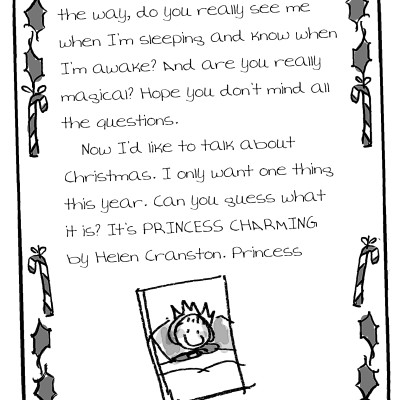 the way, do you really see me
when I'm sleeping and know when
I'm awake? And are you really
magical? Hope you don't mind all
the questions.
Now I'd like to talk about
Christmas. I only want one thing
this year. Can you guess what
it is? It's PRINCESS CHARMING
by Helen Cranston. Princess